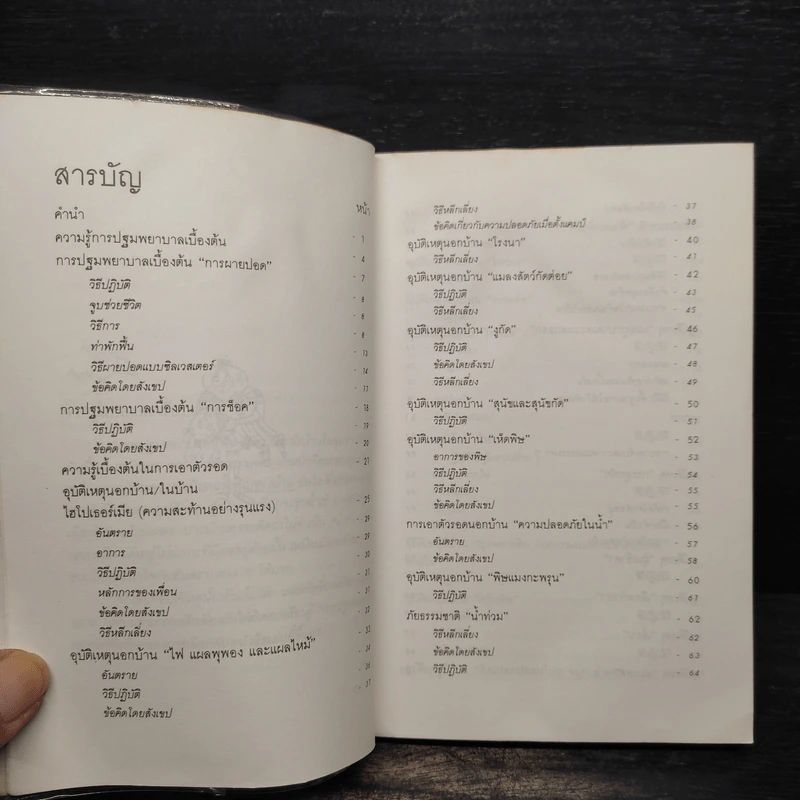 สารบัญ
คำนำ หน้า
ความรู้การปฐมพยาบาลเบื้องต้น - 1
การปฐมพยาบาลเบื้องต้น “การผายปอด” - 4
วิธีปฏิบัติ - 7
จูบช่วยชีวิต
วิธีการ - 8
ท่าพักฟื้น
วิธีผายปอดแบบซิลเวสเตอร์
ข้อคิดโดยสังเขป - 17
การปฐมพยาบาลเบื้องต้น “การช็อค” - 18
วิธีปฏิบัติ - 19
ข้อคิดโดยสังเขป - 20
ความรู้เบื้องต้นในการเอาตัวรอด - 21
อุบัติเหตุนอกบ้าน/ในบ้าน
ไฮโปเธอร์เมีย (ความสะท้านอย่างรุนแรง)
อันตราย - 29
อาการ
วิธีปฏิบัติ
หลักการของเพื่อน
ข้อคิดโดยสังเขป
วิธีหลีกเลี่ยง - 33
อุบัติเหตุนอกบ้าน “ไฟ แผลพุพอง และแผลไหม้” - 34
อันตราย
วิธีปฏิบัติ
ข้อคิดโดยสังเขป
วิธีหลีกเลี่ยง - 37
ข้อคิดเกี่ยวกับความปลอดภัยเมื่อตั้งแคมป์ - 38
อุบัติเหตุนอกบ้าน “โรงนา” - 40
วิธีหลีกเลี่ยง - 41
อุบัติเหตุนอกบ้าน “แมลงสัตว์กัดต่อย” - 42
วิธีปฏิบัติ - 43
วิธีหลีกเลี่ยง - 45
อุบัติเหตุนอกบ้าน “งูกัด” - 46
วิธีปฏิบัติ - 47
ข้อคิดโดยสังเขป - 48
วิธีหลีกเลี่ยง - 49
อุบัติเหตุนอกบ้าน “สุนัขและสุนัขกัด” - 50
วิธีปฏิบัติ - 51
อุบัติเหตุนอกบ้าน “เห็ดพิษ” - 52
อาการของพิษ - 53
วิธีปฏิบัติ - 54
วิธีหลีกเลี่ยง - 55
ข้อคิดโดยสังเขป - 55
การเอาตัวรอดนอกบ้าน “ความปลอดภัยในน้ำ” - 56
อันตราย - 57
ข้อคิดโดยสังเขป - 58
อุบัติเหตุนอกบ้าน “พิษแมงกะพรุน” - 60
วิธีปฏิบัติ - 61
ภัยธรรมชาติ “น้ำท่วม” - 62
วิธีหลีกเลี่ยง - 62
ข้อคิดโดยสังเขป - 63
วิธีปฏิบัติ - 64